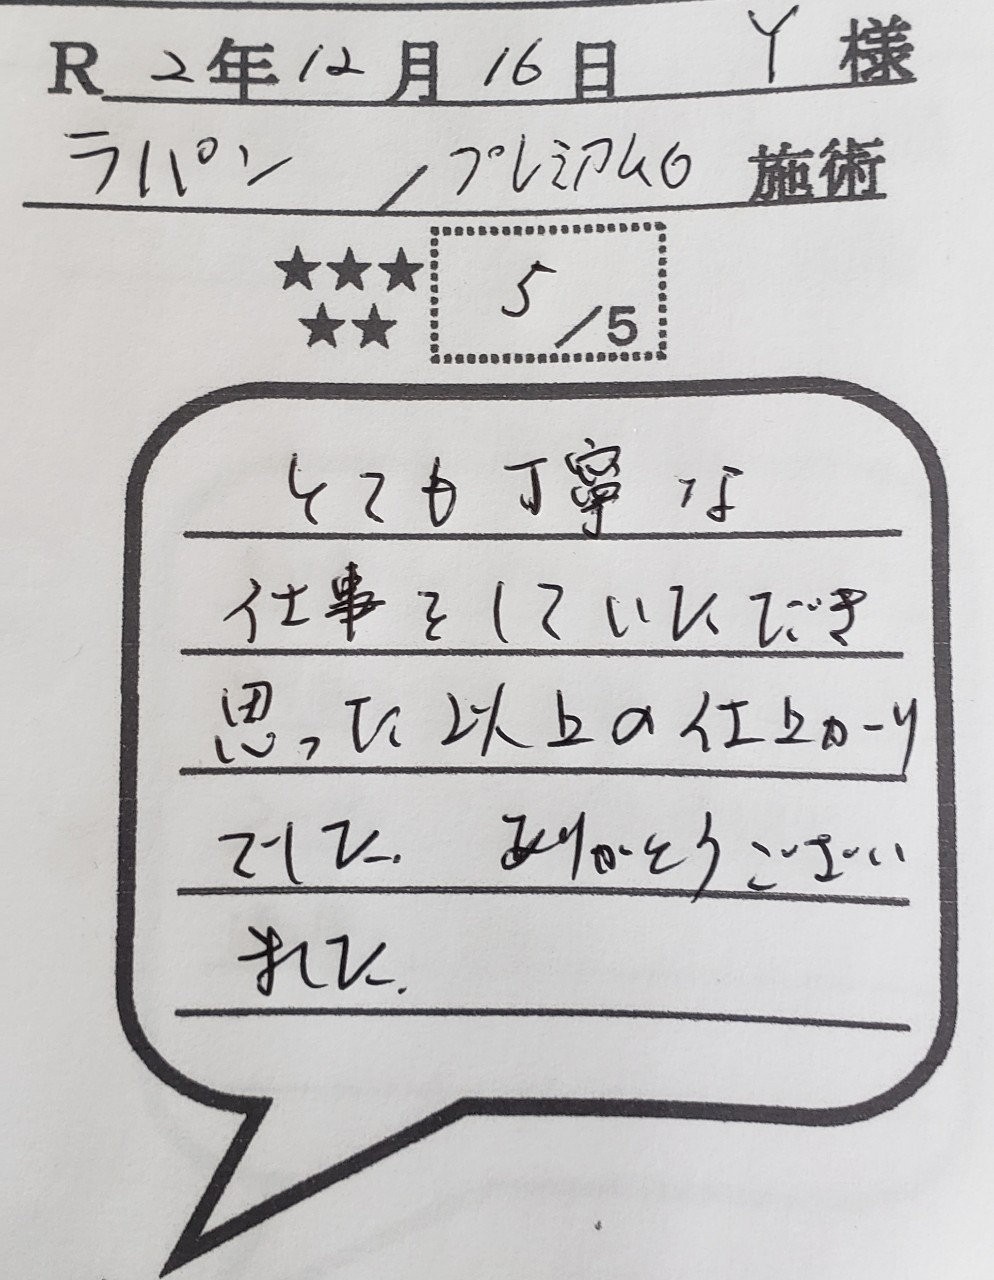 R 2年12月16日 Y 様
ラパン / プレミアム6 施術
★★★ 5/5
★★
とても丁寧な
仕事をしていただき
思った以上の仕上がり
でした。ありがとうござい
ました。